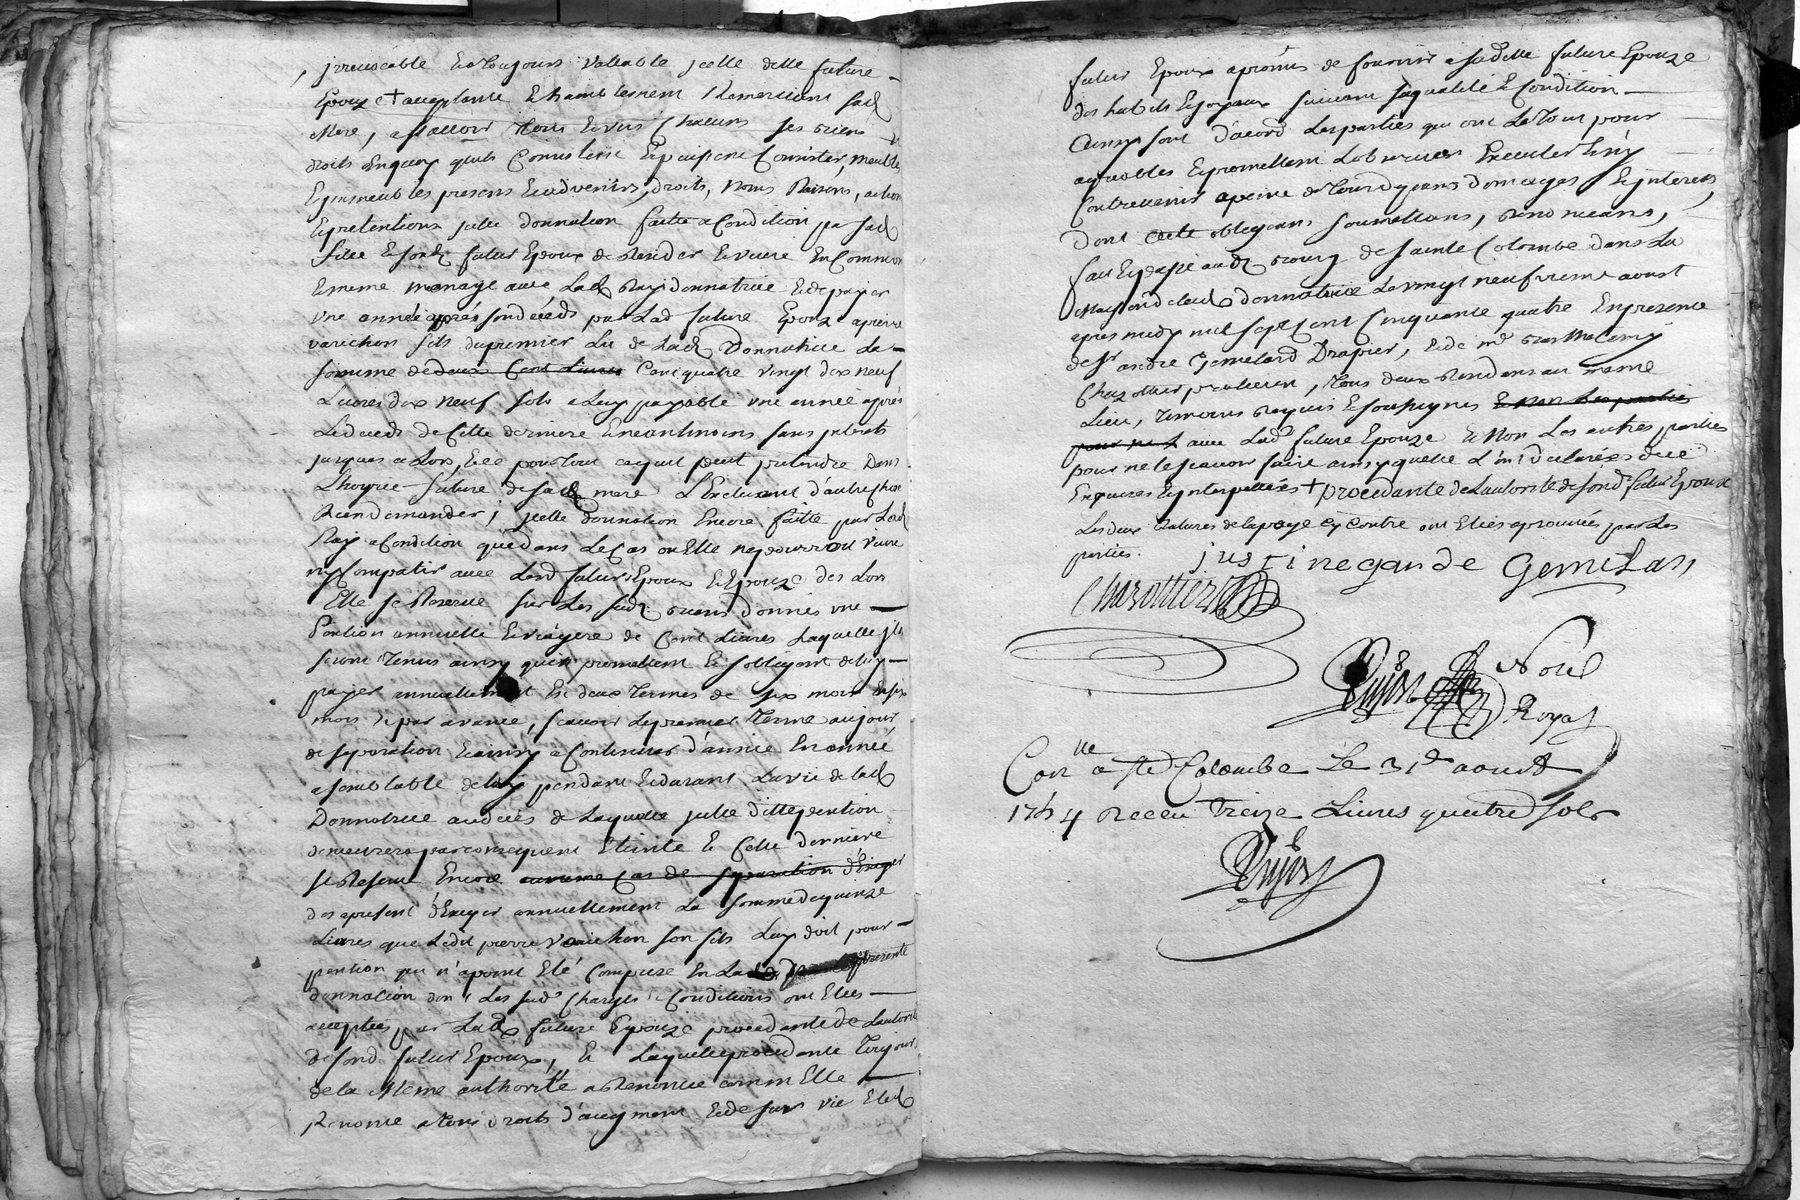 irrevocable & toujours vallable icelle ditte future
Epouze + acceptante & humblement remerciant sad
Mere, assavoir tous & uns chacuns ses biens
droits en quoy quils consistent & puissent consister, meubles
& immeubles presens & advenirs, droits, noms raisons, actions
& pretentions icelle donnation faitte a condition par sad
fille & sond futur Epoux de resider & vivre en commun
& meme menage avec lad Ray donnatrice & de payer
une année après son décéds par lad future Epouze a pierre
varichon fils du premier lit de lad Donnatrice la
somme de deux cent livres cent quatre vingt dix neuf
Livres dix neuf sols a luy payable une année après
le décéds de cette derniere & neantmoins sans interets
jusques a lors, & ce pour tout ce quil peut pretendre dans
Lhoyrie future de sad mere L'Excluant d'autre chose
Rien demander; icelle donnation Encore faitte par lad
Ray a condition que dans le cas ou Elle ne pourroit vivre
ny compatir avec lesd futurs Epoux & Epouze des lors
Elle se Reserve sur les sud biens donnés une
Pention annuelle & viagere de cent livres laquelle ils
seront tenus ainsy quils promettent & s'obligent de luy
payer annuellement en deux termes de six mois en six
mois & par avance, scavoir le premier terme au jour
de separation & ainsy a continuer d'année en année
a semblable delay pendant & durant la vie de lad
Donnatrice au décés de laquelle icelle ditte pention
demeurera par consequent Eteinte & cette derniere
se Reserve Encore au meme cas de separation d'Exiger
des apresent d'Exiger annuellement la somme de quinze
Livres que ledit pierre varichon son fils luy doit pour
pention qui n'a point Eté comprise en la presente
donnation dont les sud charges & conditions ont Etées
acceptées par lad future Epouze procedante de Lautorité
de sond futur Epoux, & laquelle procedante toujours
de la Meme authorité a Renoncé comm Elle
Renonce a tous droits d'augment & de survie & led
futur Epoux a promis de fournir a sa ditte future Epouze
des habits & joyaux suivant sa qualité & condition
Ainsy sont d'acord les parties qui ont le tout pour
agreables & promettent L'observer Executer sans y
Contrevenir a peine de tous depens domages & interets,
Dont acte obligeans soumettans, renonceans,
fait & passé aud bourg de sainte Colombe dans la
Maison de lad donnatrice Le vingt neufvieme aoust
apres midy mil sept cent cinquante quatre En presence
de Sr andre Gemelard Drapier, & de mre
Charottier praticien, tous deux residans au meme
Lieu, temoins requis & soussignés & non les parties
pour ne l avec lad future Epouze & non Les autres parties
pour ne le scavoir faire ainsy quelle L'ont declarées de ce
Enquises & interpellées + procedante de Lautorité de sond futur Epoux
Les deux ratures de la page cy contre ont Etées aprouvées par les
parties. justine gande Gemelas
Charottier
Dujast Notre
Royal
Conlle a Ste Colombe Le 31e aoust
1754 Receu treize Livres quatre sols
Dujast